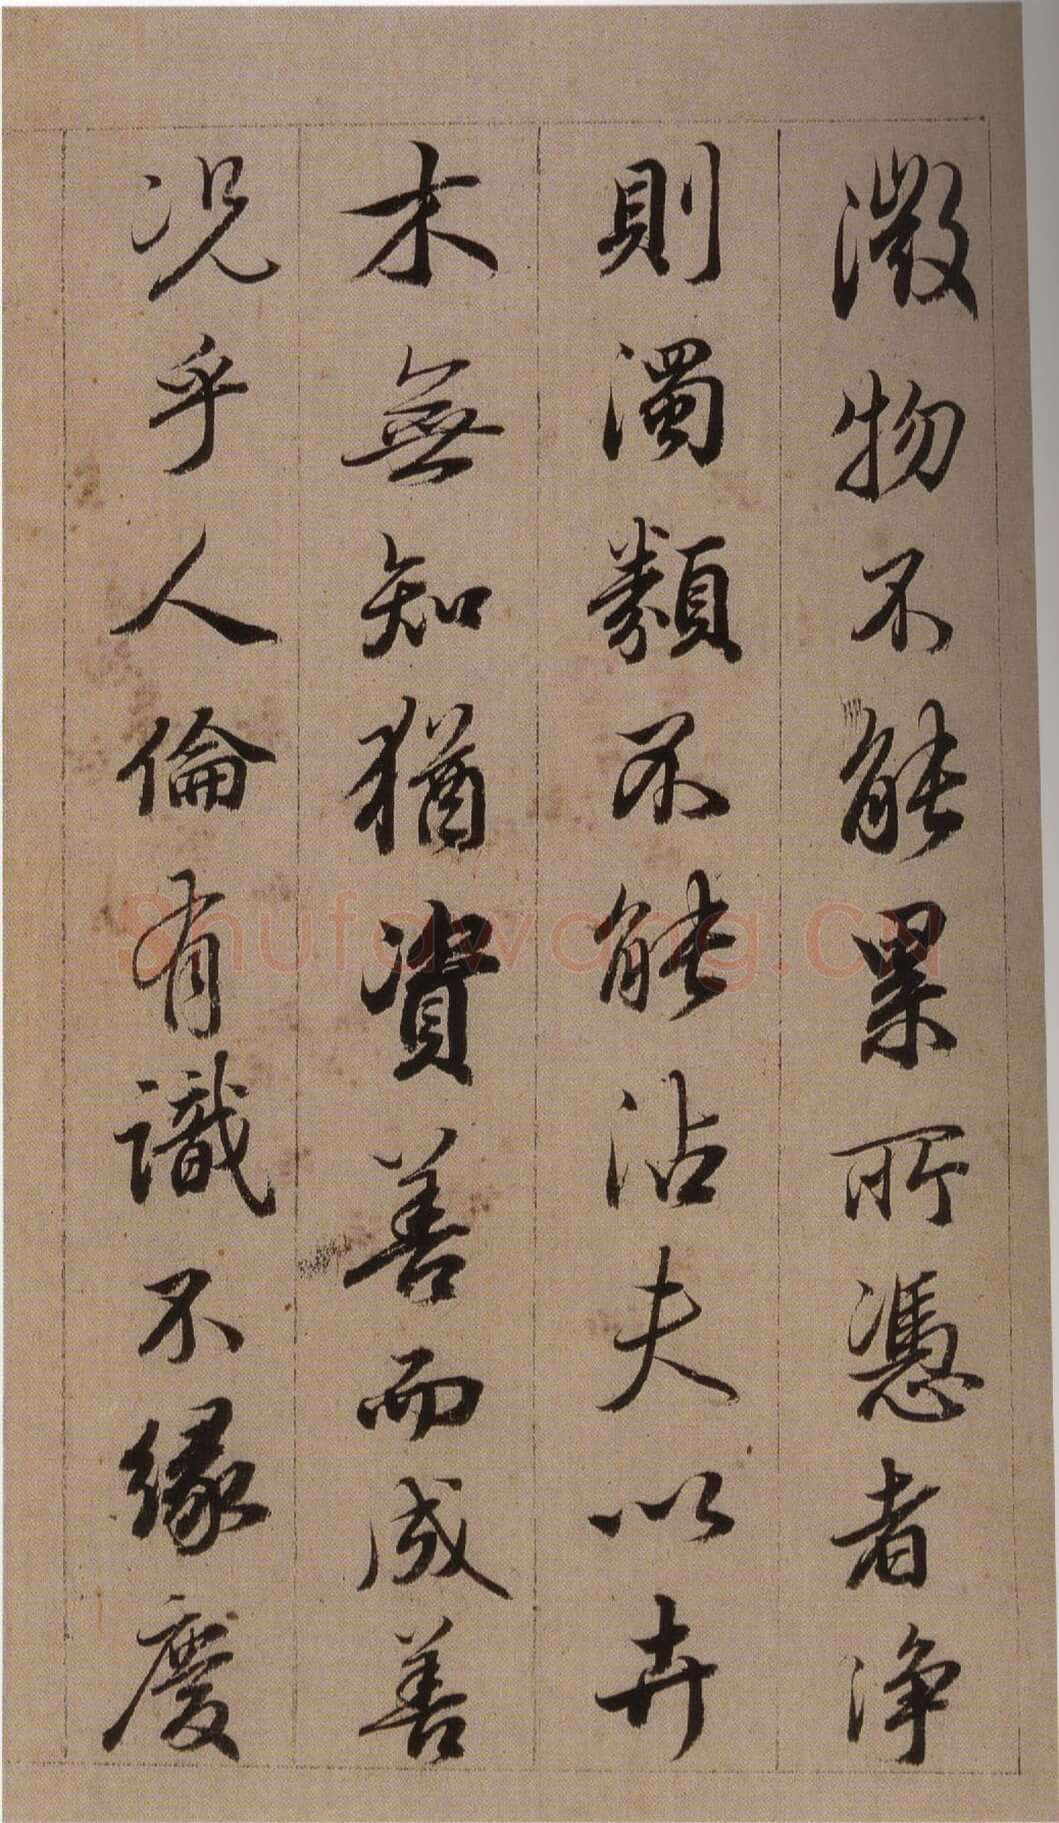 微物不能累所憑者淨
則濁類不能沾夫以卉
木無知猶資善而成善
况乎人倫有識不緣慶
Shufawang.cn